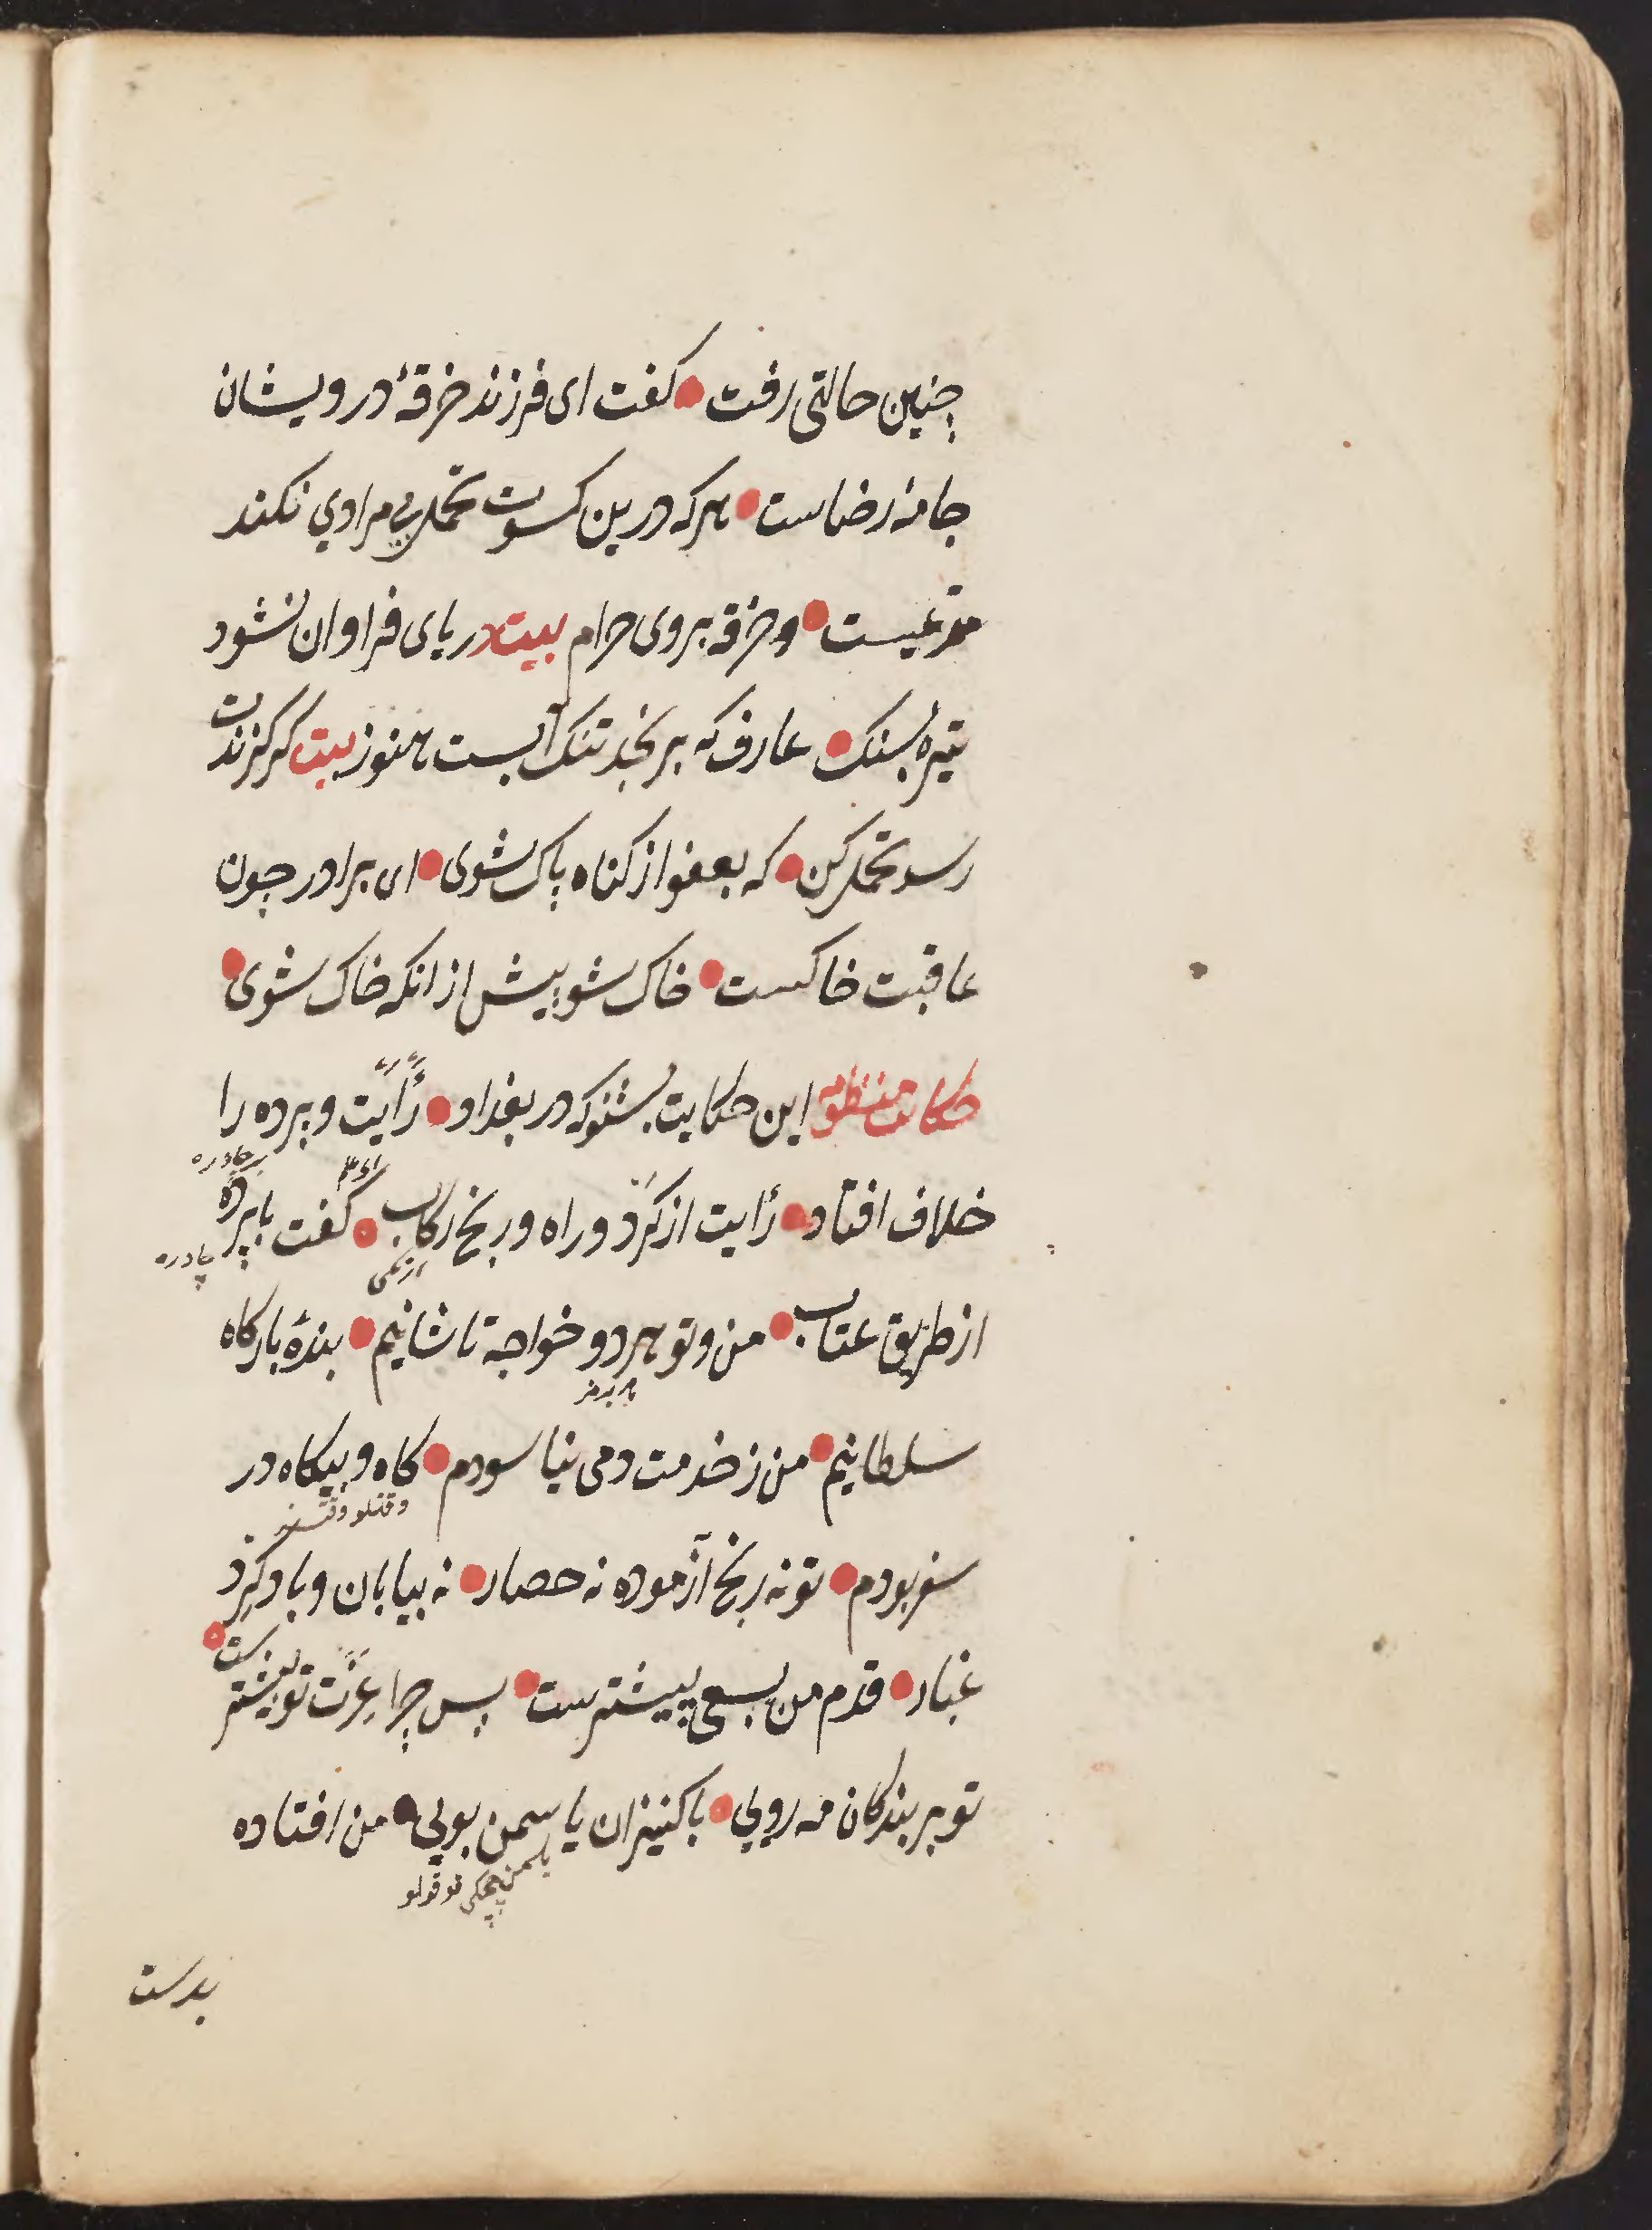 چنین حالتی رفت • کفت ای فرزند خرقهٔ درویشان
جامهٔ رضاست • هرکه درین کسوت تحمل بی مرادی نکند
مدعیست • و خرقه بروی حرام بیت دریای فراوان نشود
تیره بسنک • عارف که برنجد تنک آبست هنوز بیت کر کزندت
رسد تحمل کن • که بعفو از کناه پاک شوی • ای برادر چون
عاقبت خاکست • خاک شو پیش از انکه خاک شوی •
حکایت منظومه این حکایت بشنو که در بغداد • رأیت و پرده را
خلاف افتاد • رأیت از کرد و راه و رنج رکاب • کفت با پرده
چادره
از طریق عتاب • من و تو هر دو خواجه تاشانیم • بندهٔ بارکاه
سلطانیم • من ز خدمت دمی نیاسودم • کاه و بیکاه در
وقتلو وقتسز
سفر بودم • تو نه رنج آزموده نه حصار • نه بیابان و باد و کرد
غبار • قدم من بسعی پیشترست • پس چرا عزت تو بیشترست •
تو بر بندکان مه رویی • با کنیزان یاسمن بویی • من افتاده
یاسمن چچکی قوقولو
بدست